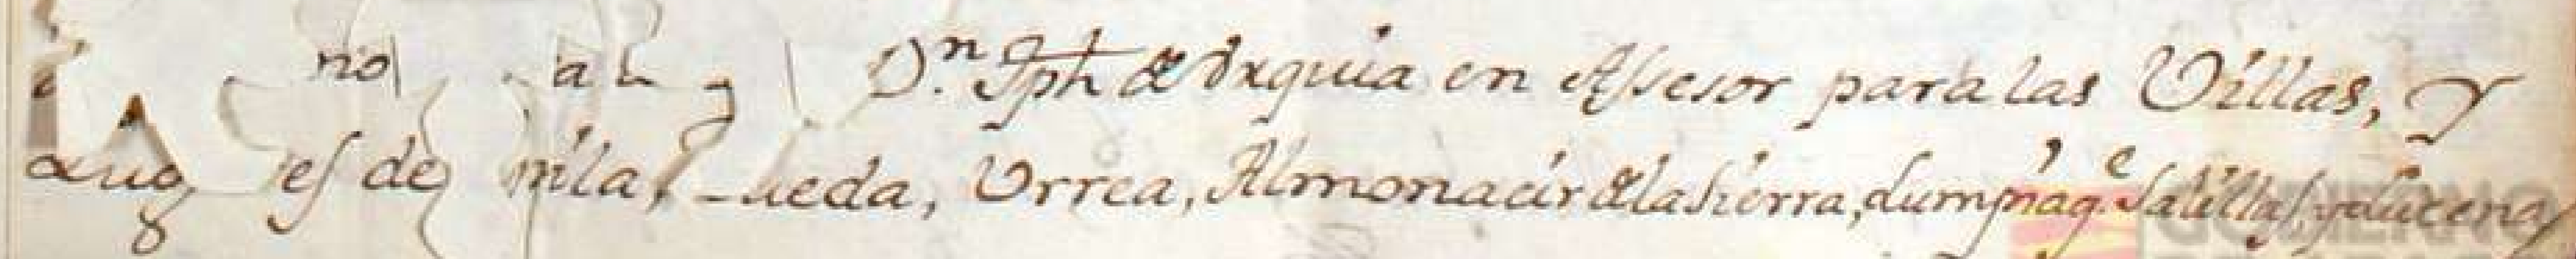 no al D.n Jph de Urquia en Assesor para las Villas, y
Lug es de mla, ueda, Urrea, Almonacir de la Sierra, Lumpiaq.e Salillas, y Lucena,